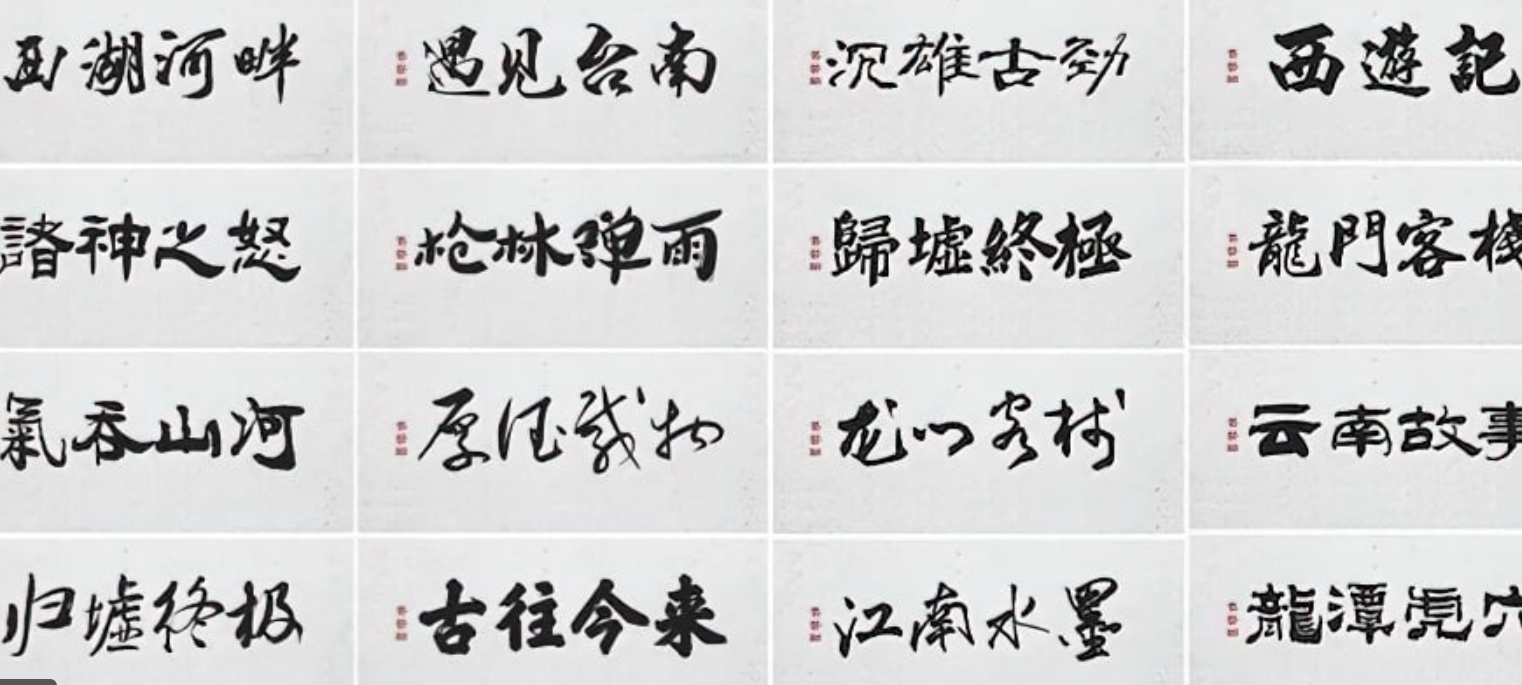 湖河畔
遇见台南
沉雄古劲
西遊記
諸神之怒
枪林弹雨
歸墟終極
龍門客棧
氣吞山河
厚德载物
龙门客栈
云南故事
归墟终极
古往今来
江南水墨
龍潭虎穴